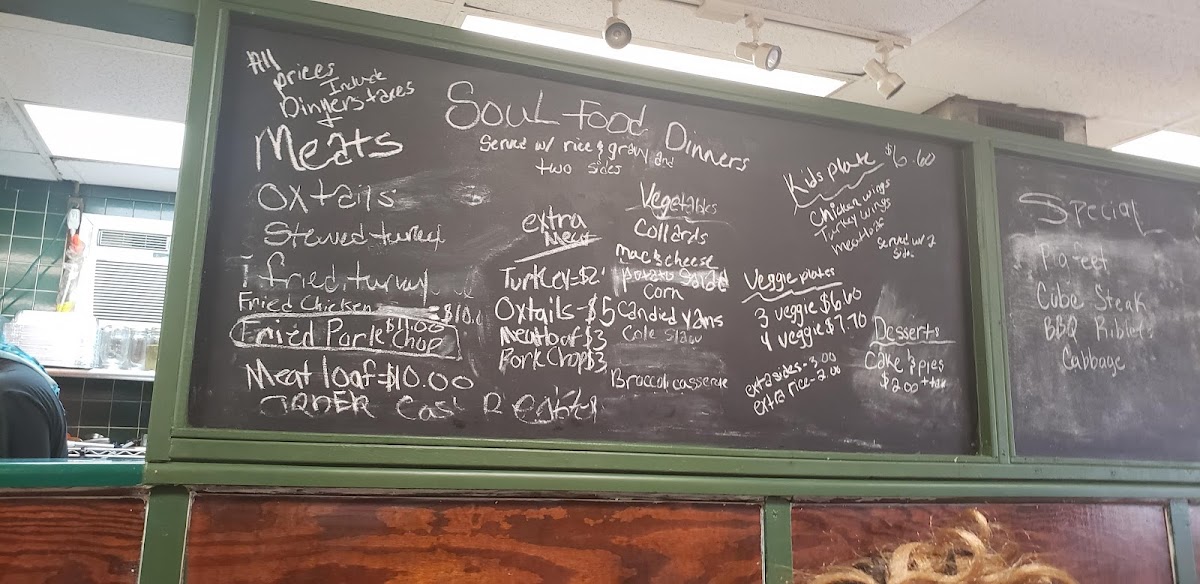 All
prices
Include
Dinners taxes
Meats
Oxtails
Stewed turkey
fried turkey
Fried Chicken = $10.0
Fried Pork Chop $11.00
Meat loaf = $10.00
ORDER
Soul Food Dinners
Served w/ rice & gravy and
two sides
extra
Meat
Turkey = $2
Oxtails - $5
Meatloaf $3
Pork Chop $3
Vegetables
Collards
mac & cheese
Potato Salad
Corn
Candied Yams
Cole Slaw
Broccoli casserole
Kids plate $6.60
Chicken wings
Turkey wings
meatloaf
Served w/ 2
Side
Veggie plates
3 veggie $6.60
4 veggie $7.70
extra sides - 3.00
extra rice - 2.00
Desserts
Cake & pies
$2.00 + tax
Special
Pigfeet
Cube Steak
BBQ Riblets
Cabbage